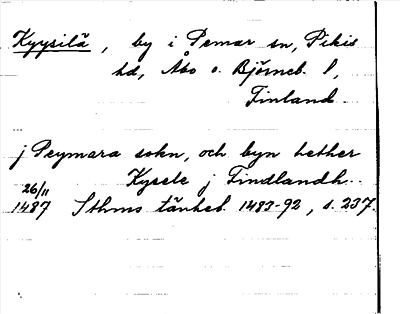 Kyysilä, by i Pemar sn, Pikis
hd, Åbo o. Björneb. l,
Finland
j Peymara sokn, och byn hether
Kysele j Findlandh.
26/11
1487 Sthms tänkeb. 1483-92, s. 237.